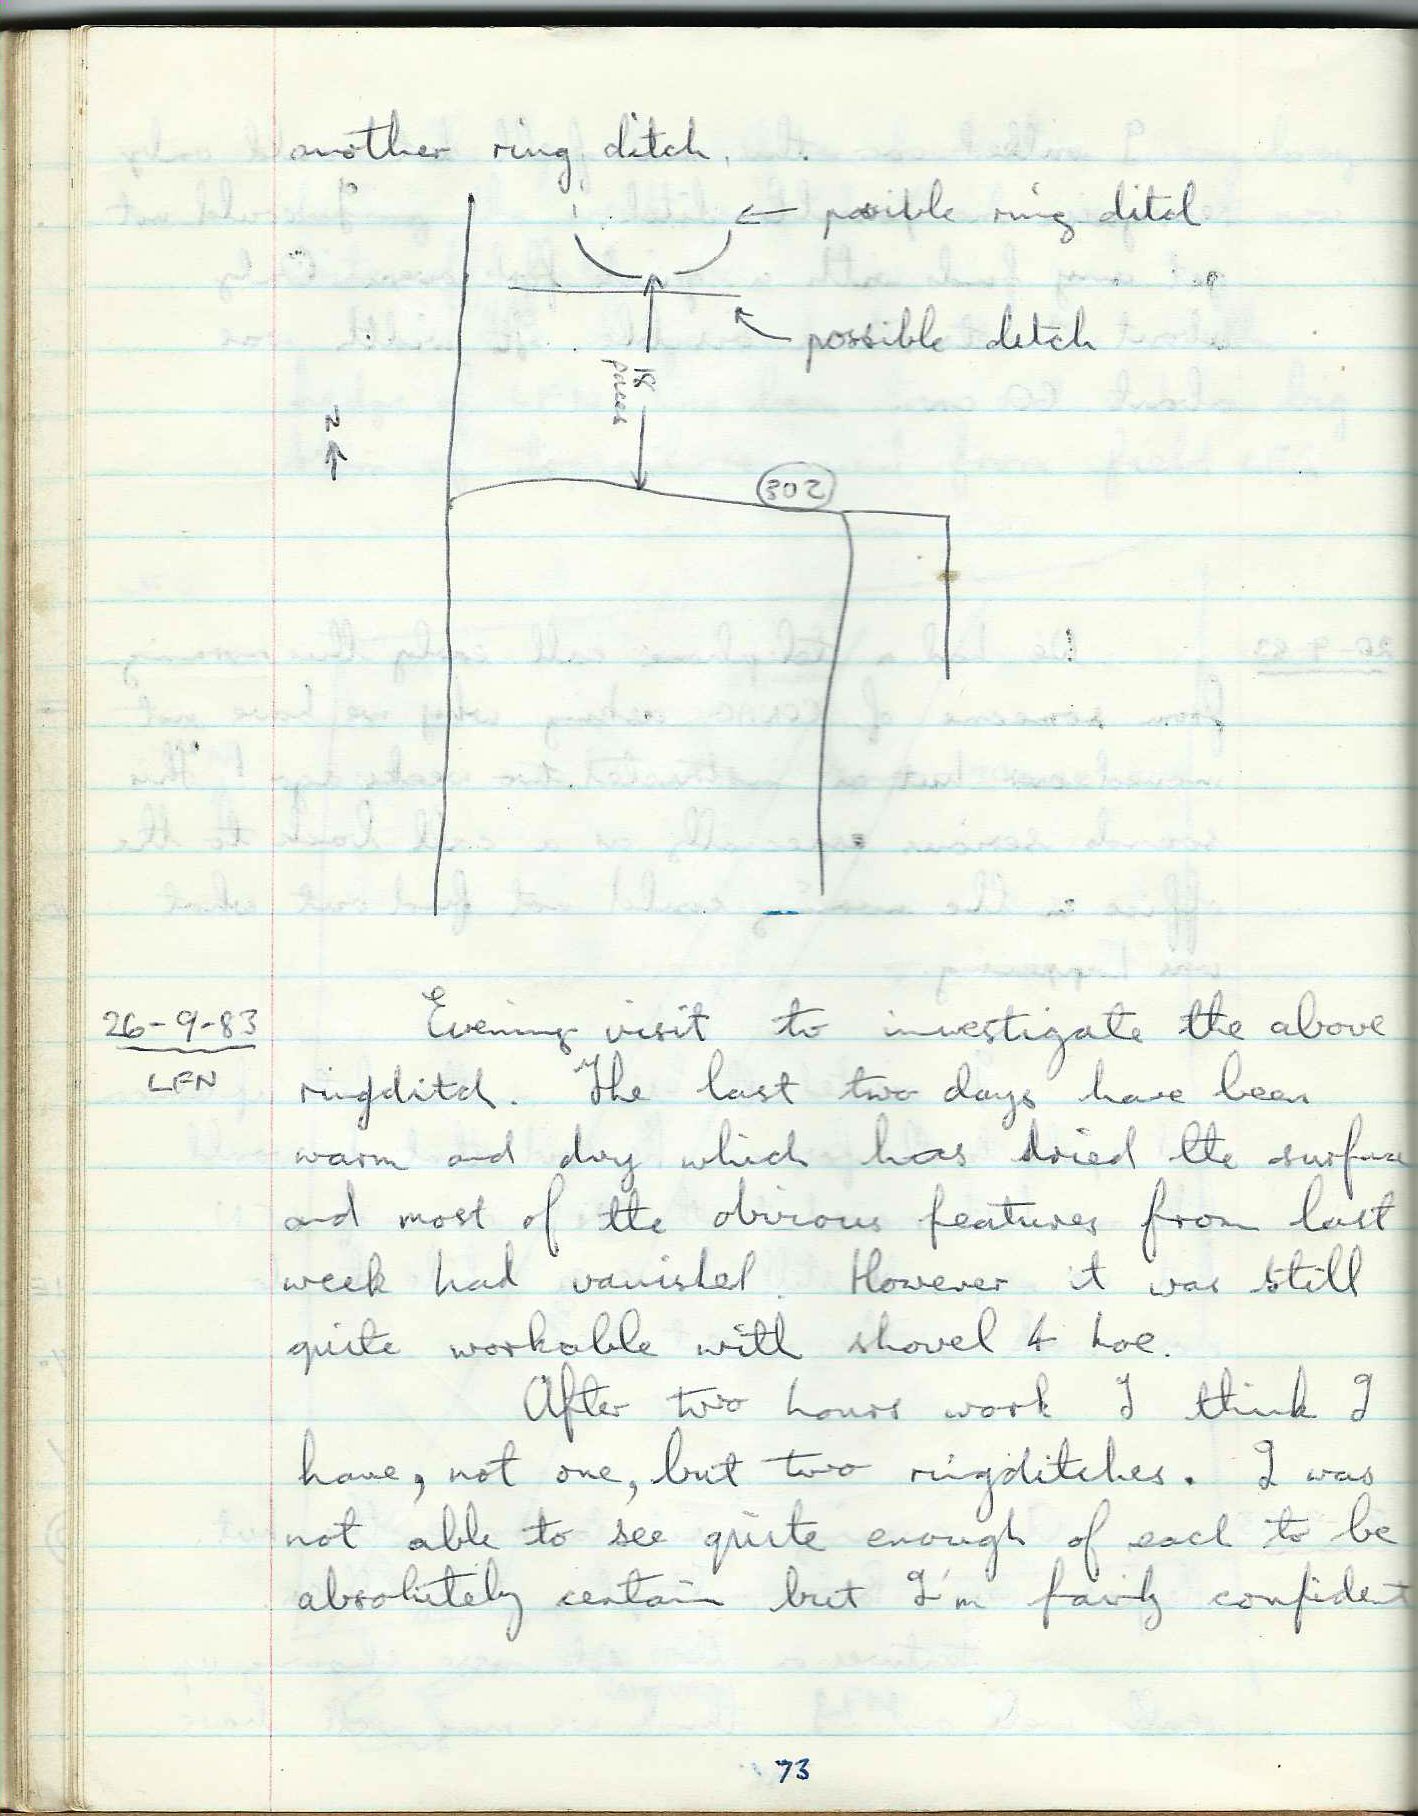 another ring ditch.
possible ring ditch
possible ditch
18
paces
N
302
26-9-83
LFN
Evening visit to investigate the above
ringditch. The last two days have been
warm and dry which has dried the surface
and most of the obvious features from last
week had vanished. However it was still
quite workable with shovel & hoe.
After two hours work I think I
have, not one, but two ringditches. I was
not able to see quite enough of each to be
absolutely certain but I'm fairly confident
73